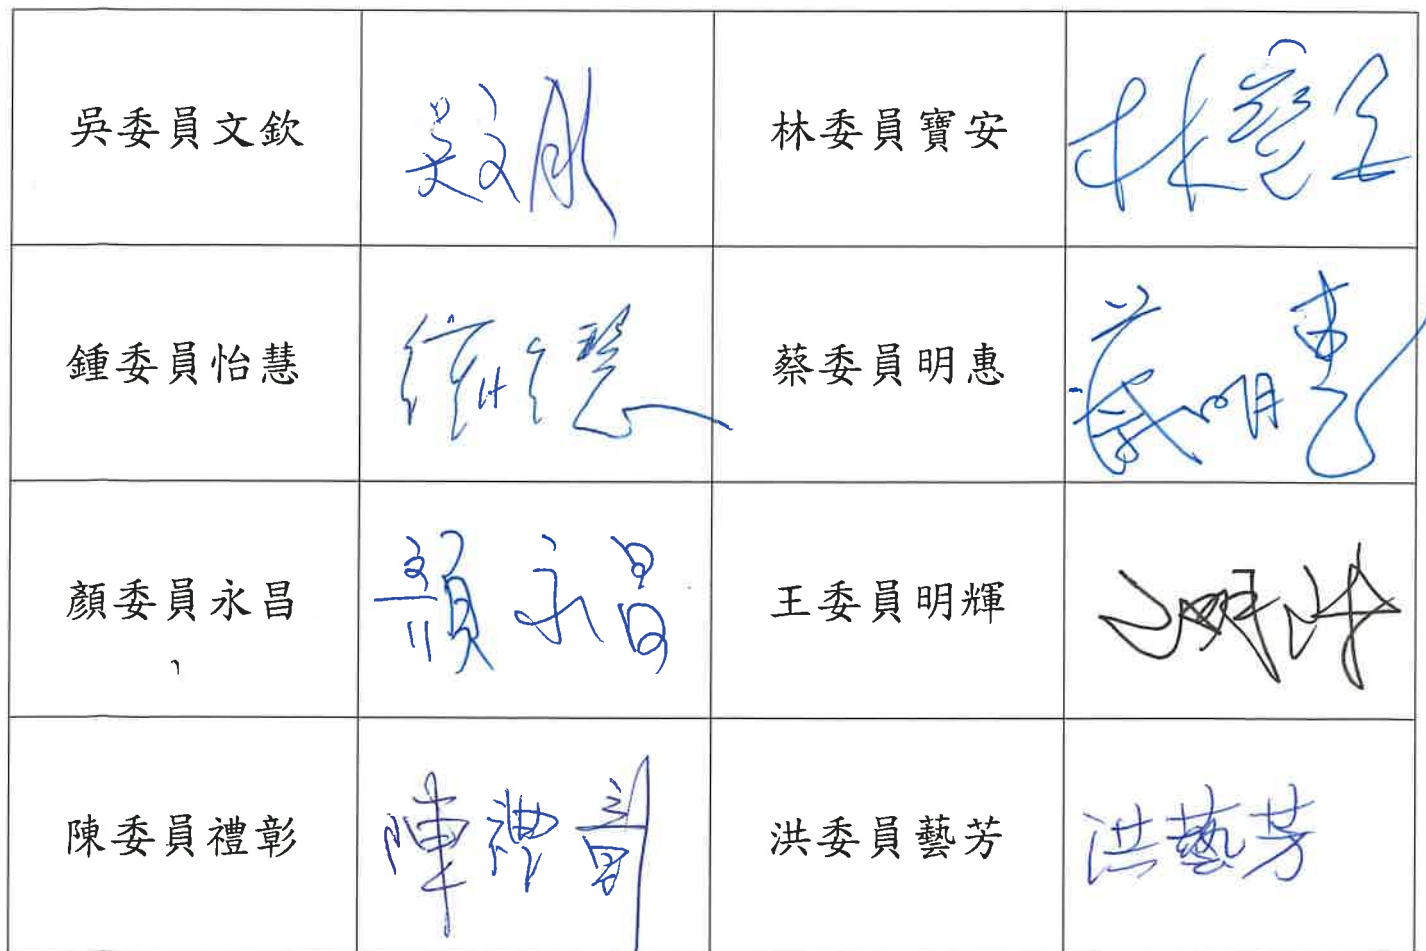 吳委員文欽
吳文欽
林委員寶安
林寶安
鍾委員怡慧
鍾怡慧
蔡委員明惠
蔡明惠
顏委員永昌
顏永昌
王委員明輝
王明輝
陳委員禮彰
陳禮彰
洪委員藝芳
洪藝芳